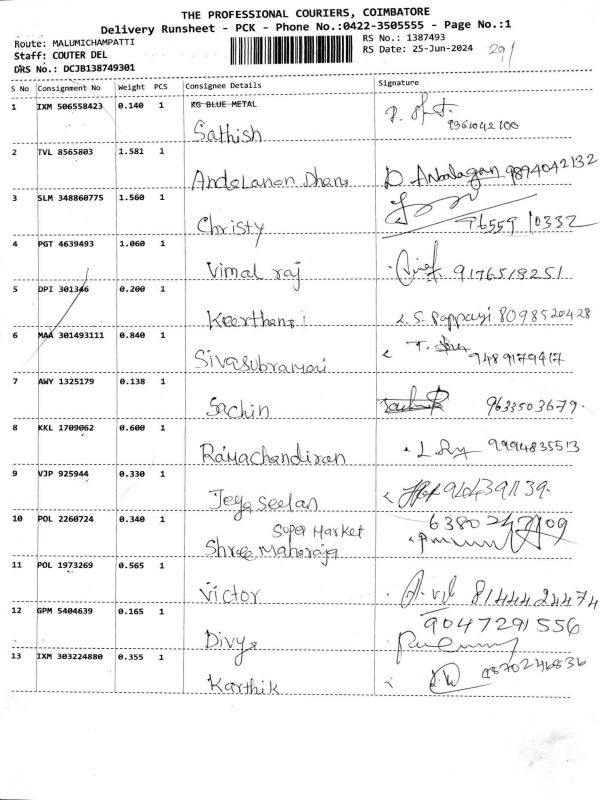 THE PROFESSIONAL COURIERS, COIMBATORE
Delivery Runsheet - PCK - Phone No.:0422-3505555 - Page No.:1
Route: MALUMICHAMPATTI
RS No.: 1387493
Staff: COUTER DEL
RS Date: 25-Jun-2024
DRS No.: DCJB138749301
S No Consignment No Weight PCS Consignee Details Signature
1 IXM 506558423 0.140 1 KG BLUE METAL
Sathish 9361042100
2 TVL 8565803 1.581 1
D. Anbalagan 9894042132
3 SLM 348860775 1.560 1
Christy 76559 10332
4 PGT 4639493 1.060 1
Vimal raj 9176518251
5 DPI 301346 0.200 1
Keerthana L. S. Pappayi 8098520428
6 MAA 301493111 0.840 1
Sivasubramani 9489179417
7 AWY 1325179 0.138 1
Sachin 9633503679.
8 KKL 1709062 0.600 1
Ramachandiran 9994835513
9 VJP 925944 0.330 1
Jeya Seelan
10 POL 2260724 0.340 1
Super Market
Shree Maharaja
11 POL 1973269 0.565 1
Victor 8144424474
12 GPM 5404639 0.165 1
9047291556
Divya
13 IXM 303224880 0.355 1
Karthik